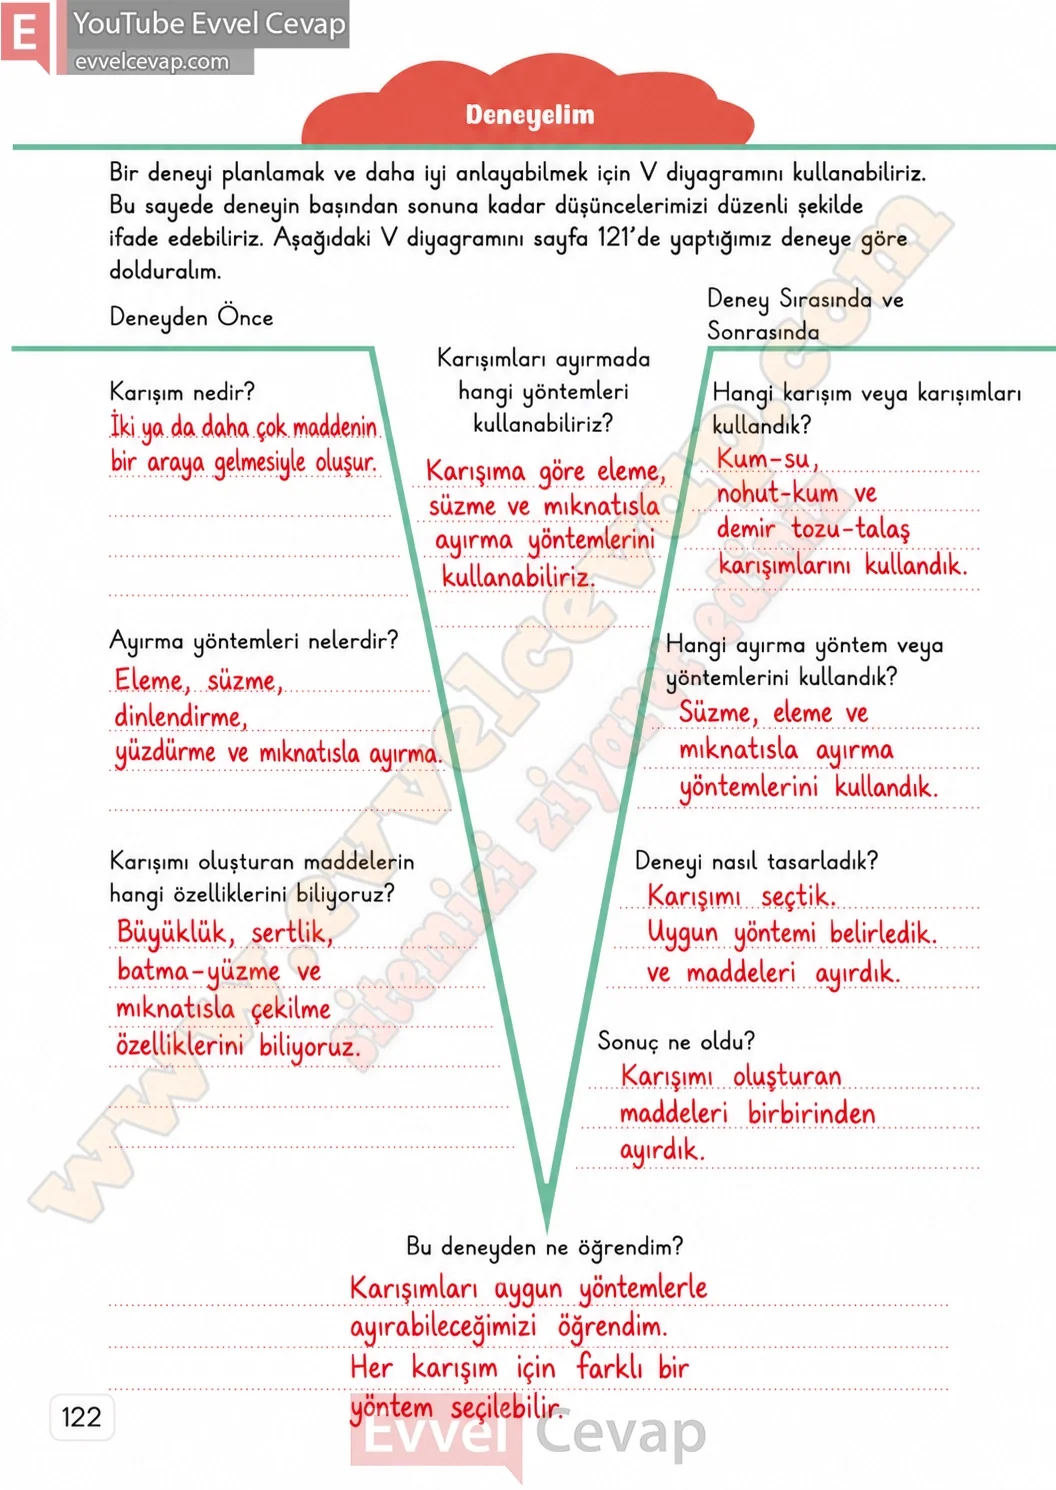 E YouTube Evvel Cevap
evvelcevap.com
Deneyelim
Bir deneyi planlamak ve daha iyi anlayabilmek için V diyagramını kullanabiliriz.
Bu sayede deneyin başından sonuna kadar düşüncelerimizi düzenli şekilde
ifade edebiliriz. Aşağıdaki V diyagramını sayfa 121'de yaptığımız deneye göre
dolduralım.
Deneyden Önce
Karışım nedir?
İki ya da daha çok maddenin
bir araya gelmesiyle oluşur.
Ayırma yöntemleri nelerdir?
Eleme, süzme,
dinlendirme,
yüzdürme ve mıknatısla ayırma.
Karışımı oluşturan maddelerin
hangi özelliklerini biliyoruz?
Büyüklük, sertlik,
batma-yüzme ve
mıknatısla çekilme
özelliklerini biliyoruz.
Karışımları ayırmada
hangi yöntemleri
kullanabiliriz?
Karışıma göre eleme,
süzme ve mıknatısla
ayırma yöntemlerini
kullanabiliriz.
Deney Sırasında ve
Sonrasında
Hangi karışım veya karışımları
kullandık?
Kum-su,
nohut-kum ve
demir tozu-talaş
karışımlarını kullandık.
Hangi ayırma yöntem veya
yöntemlerini kullandık?
Süzme, eleme ve
mıknatısla ayırma
yöntemlerini kullandık.
Deneyi nasıl tasarladık?
Karışımı seçtik.
Uygun yöntemi belirledik.
ve maddeleri ayırdık.
Sonuç ne oldu?
Karışımı oluşturan
maddeleri birbirinden
ayırdık.
Bu deneyden ne öğrendim?
Karışımları aygun yöntemlerle
ayırabileceğimizi öğrendim.
Her karışım için farklı bir
yöntem seçilebilir.
122
Evvel Cevap
www.evvelcevap.com
sitemizi ziyaret ediniz